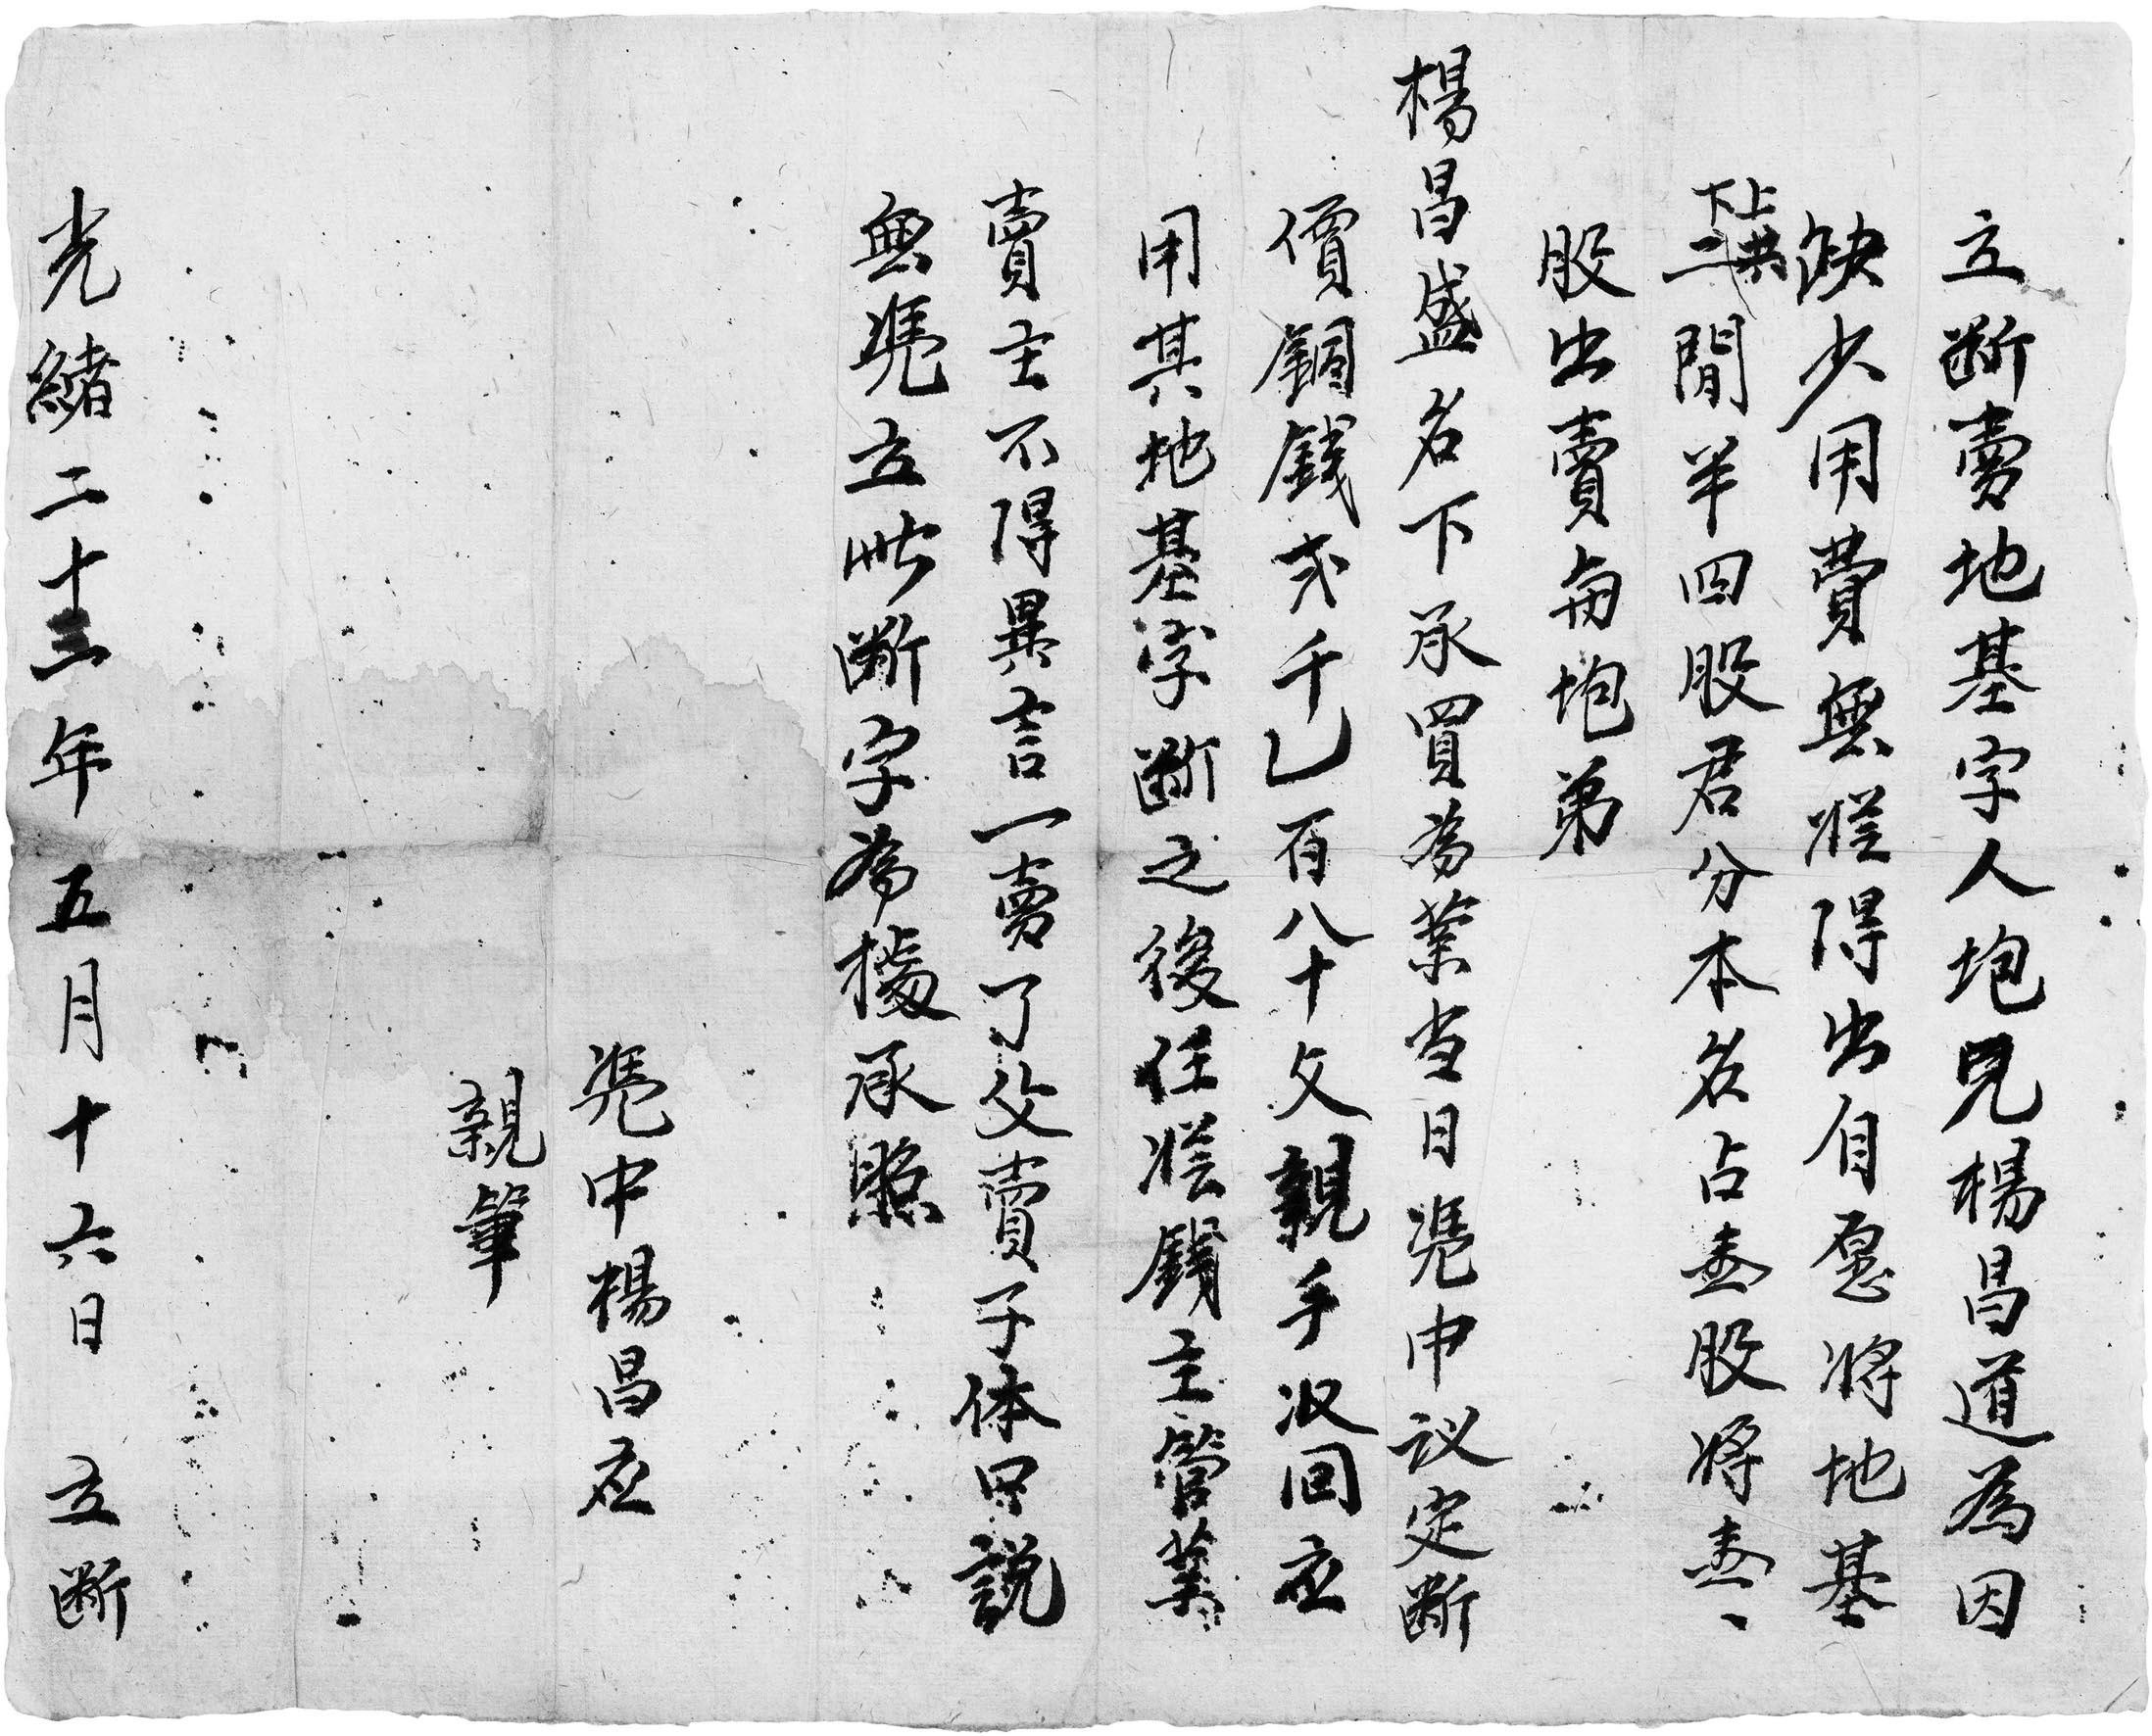 立断賣地基字人垉兄楊昌道為因
缺少用費無從得出自愿將地基
上下共二間半四股君分本名占壹股將壹
股出賣與垉弟
楊昌盛名下承買為業當日凴中议定断
價銅錢弍千乚百八十文親手收回应
用其地基字断之後任從錢主管業
賣主不得異言一賣了父賣子休口説
無凴立此断字為據承照
凴中楊昌应
親筆
光緒二十三年五月十六日 立断